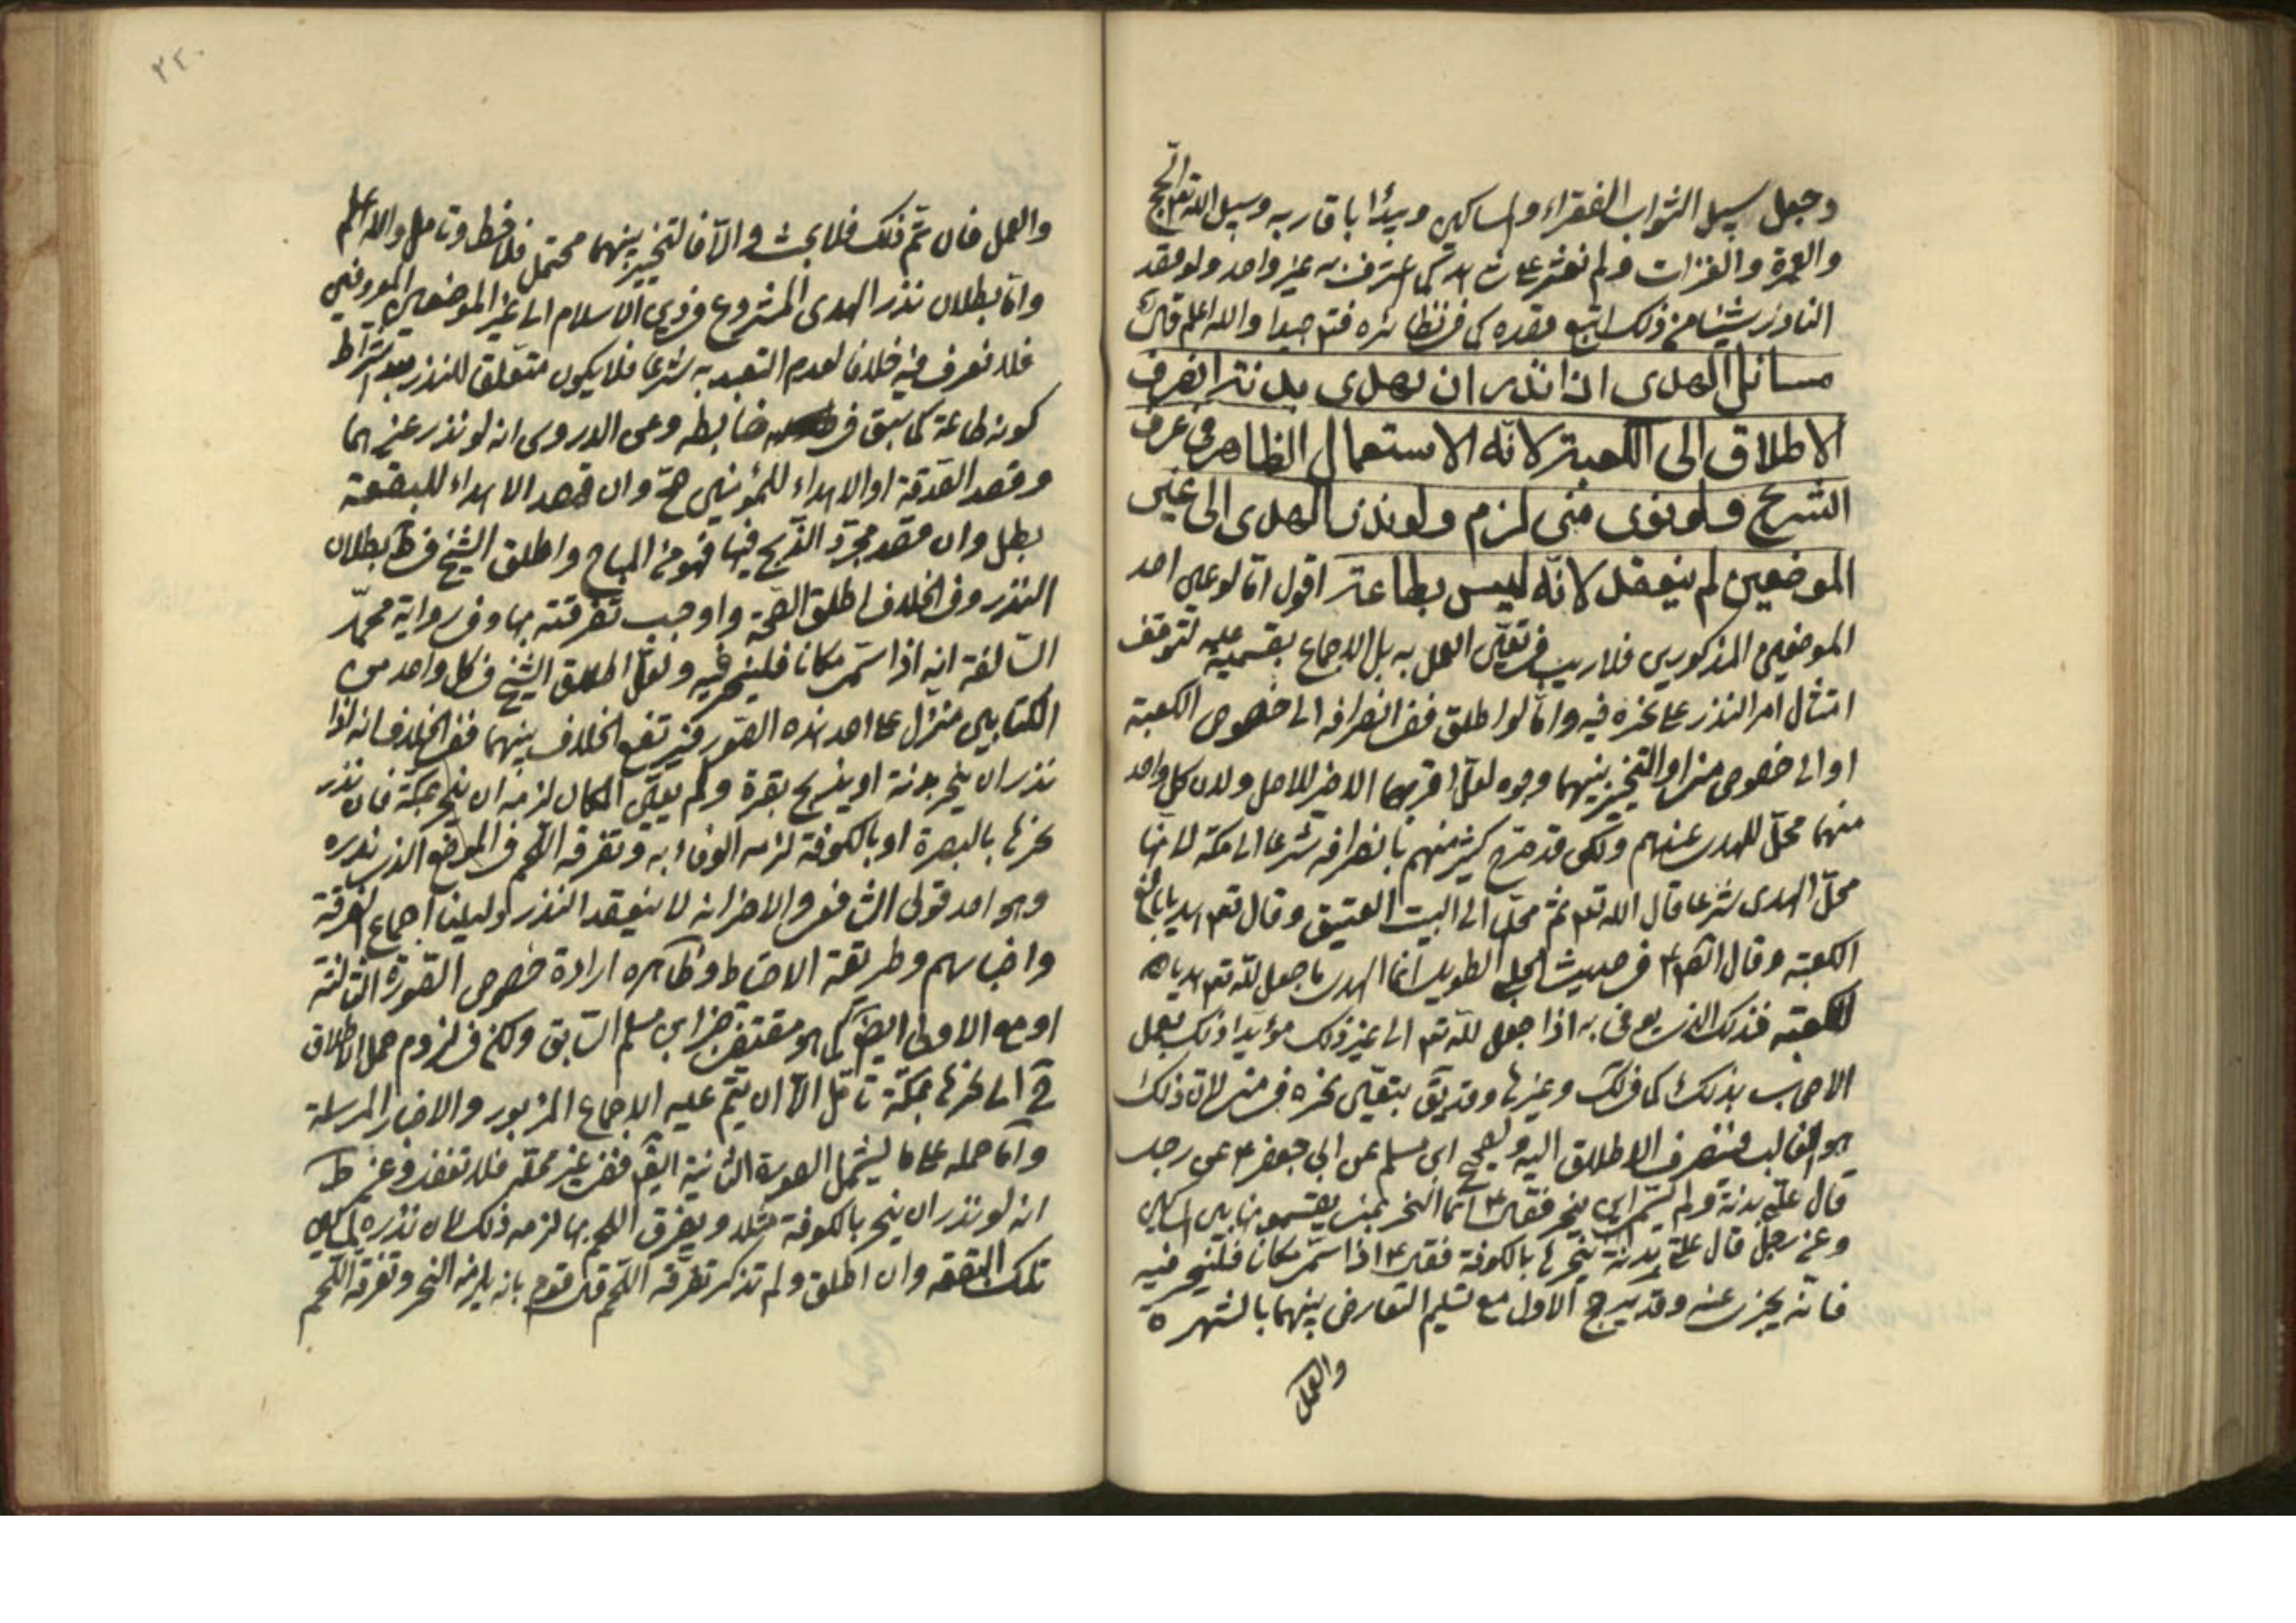 وجعل سبيل الثواب الفقراء والمساكين ويبدأ باقاربه وسبيل الله تعم الحج
والعمرة والغزات ولم نعثر على كما اعترف به غير واحد ولو قصد
الناذر شيئا من ذلك اتبع قصده كما في نظائره فتدبر جيدا والله اعلم قال
مسائل الهدى اذا نذر ان يهدى بدنة انصرف
الاطلاق الى الكعبة لانه الاستعمال الظاهر في عرف
الشرع ولو نوى منى لزم ولو نذر الهدى الى غير
الموضعين لم ينعقد لانه ليس بطاعة اقول اما لو عين احد
الموضعين المذكورين فلا ريب في تعين العمل به بل الاجماع بقسميه عليه لتوقف
امتثال امر النذر على نحره فيه واما لو اطلق ففي انصرافه الى خصوص الكعبة
او الى خصوص منى او التخيير بينهما وجوه لعل اقربها الاخير للاصل ولان كل واحد
منهما محل للهدى عندهم ولكن قد صرح كثير منهم بانصرافه شرعا الى مكة لانها
محل الهدى شرعا قال الله تعم ثم محلها الى البيت العتيق وقال تعم هديا بالغ
الكعبة وقال الصم في حديث الطويل انما الهدى ما جعل لله تعم هديا
للكعبة فذلك الذى يوفى به اذا جعل لله تعم الى غير ذلك مؤيدا ذلك بعمل
الاصحاب بذلك كما في لك وغيرها وقد يق بتعين نحره في منى لان ذلك
هو الغالب فينصرف الاطلاق اليه ولصحيح ابن مسلم عن ابي جعفر ع عن رجل
قال على بدنة ولم يسم اين ينحر فقال ع انما النحر بمنى يقسمونها بين المساكين
وعن رجل قال على بدنة ينحرها بالكوفة فقال ع اذا سمى مكانا فلينحر فيه
فانه يجزى عنه وقد يرجح الاول مع تسليم التعارض بينهما بالشهرة
والعمل
٢٢٠
والعمل فان تم ذلك فلا بحث والا فالتخيير بينهما محتمل فلاحظ وتامل والله اعلم
واما بطلان نذر الهدى المشروع في دين الاسلام الى غير الموضعين المعروفين
فلا نعرف فيه خلافا لعدم التعبد به شرعا فلا يكون متعلق للنذر بعد اشتراط
كونه طاعة كما سبق في ضابطه وعن الدروس انه لو نذر عنهما
وقصد الصدقة او الاهداء للمؤمنين صح وان قصد الاهداء للبقعة
بطل وان قصد مجرد الذبح فيها فهو من المباح واطلق الشيخ في ط بطلان
النذر وفي الخلاف اطلق الصحة واوجب تفرقته بها وفي رواية محمد
السالفة انه اذا سمى مكانا فلينحر فيه ولعل اطلاق الشيخ في كل واحد من
الكتابين منزل على احد هذه الصور فيرتفع الخلاف بينهما ففي الخلاف انه اذا
نذر ان ينحر بدنة او يذبح بقرة ولم يعين المكان لزمه ان ينحر بمكة فان نذر
نحرها بالبصرة او بالكوفة لزمه الوفاء به وتفرقة اللحم في الموضع الذى نذره
وهو احد قولى الشافعى والاخر انه لا ينعقد النذر دليلنا اجماع الفرقة
واخبارهم وطريقة الاحتياط وظاهره ارادة خصوص الصورة الثالثة
او مع الاولى ايضو كما هو مقتضى خبر ابن مسلم السابق ولكن في لزوم حمل الاطلاق
ح الى نحرها بمكة تامل الا ان يتم عليه الاجماع المزبور والاخبار المرسلة
واما حمله على ما يشمل الصورة الثانية ايضو ففى غير محله فلا تغفل وعن ط
انه لو نذر ان ينحر بالكوفة مثلا ويفرق اللحم بها لزمه ذلك لان نذره لمساكين
تلك البقعة وان اطلق ولم تذكر تفرقة اللحم قال قوم بانه يلزمه النحر وتفرقة اللحم